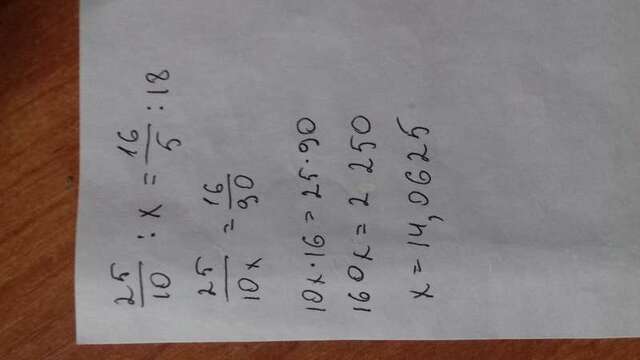 25/10 : x = 16/5 : 18
25/10x = 16/90
10x · 16 = 25 · 90
160x = 2 250
x = 14,0625